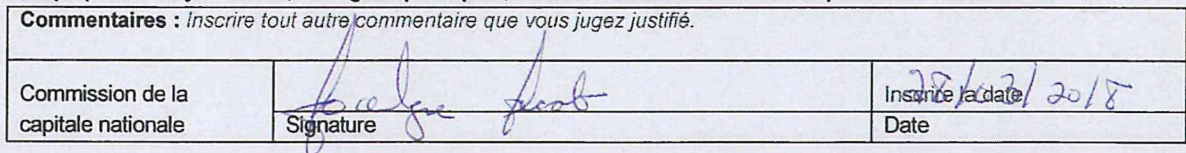 Commentaires : Inscrire tout autre commentaire que vous jugez justifié.
Commission de la
capitale nationale
Jocelyne
Signature
Inscrire la date
28/03/2018
Date